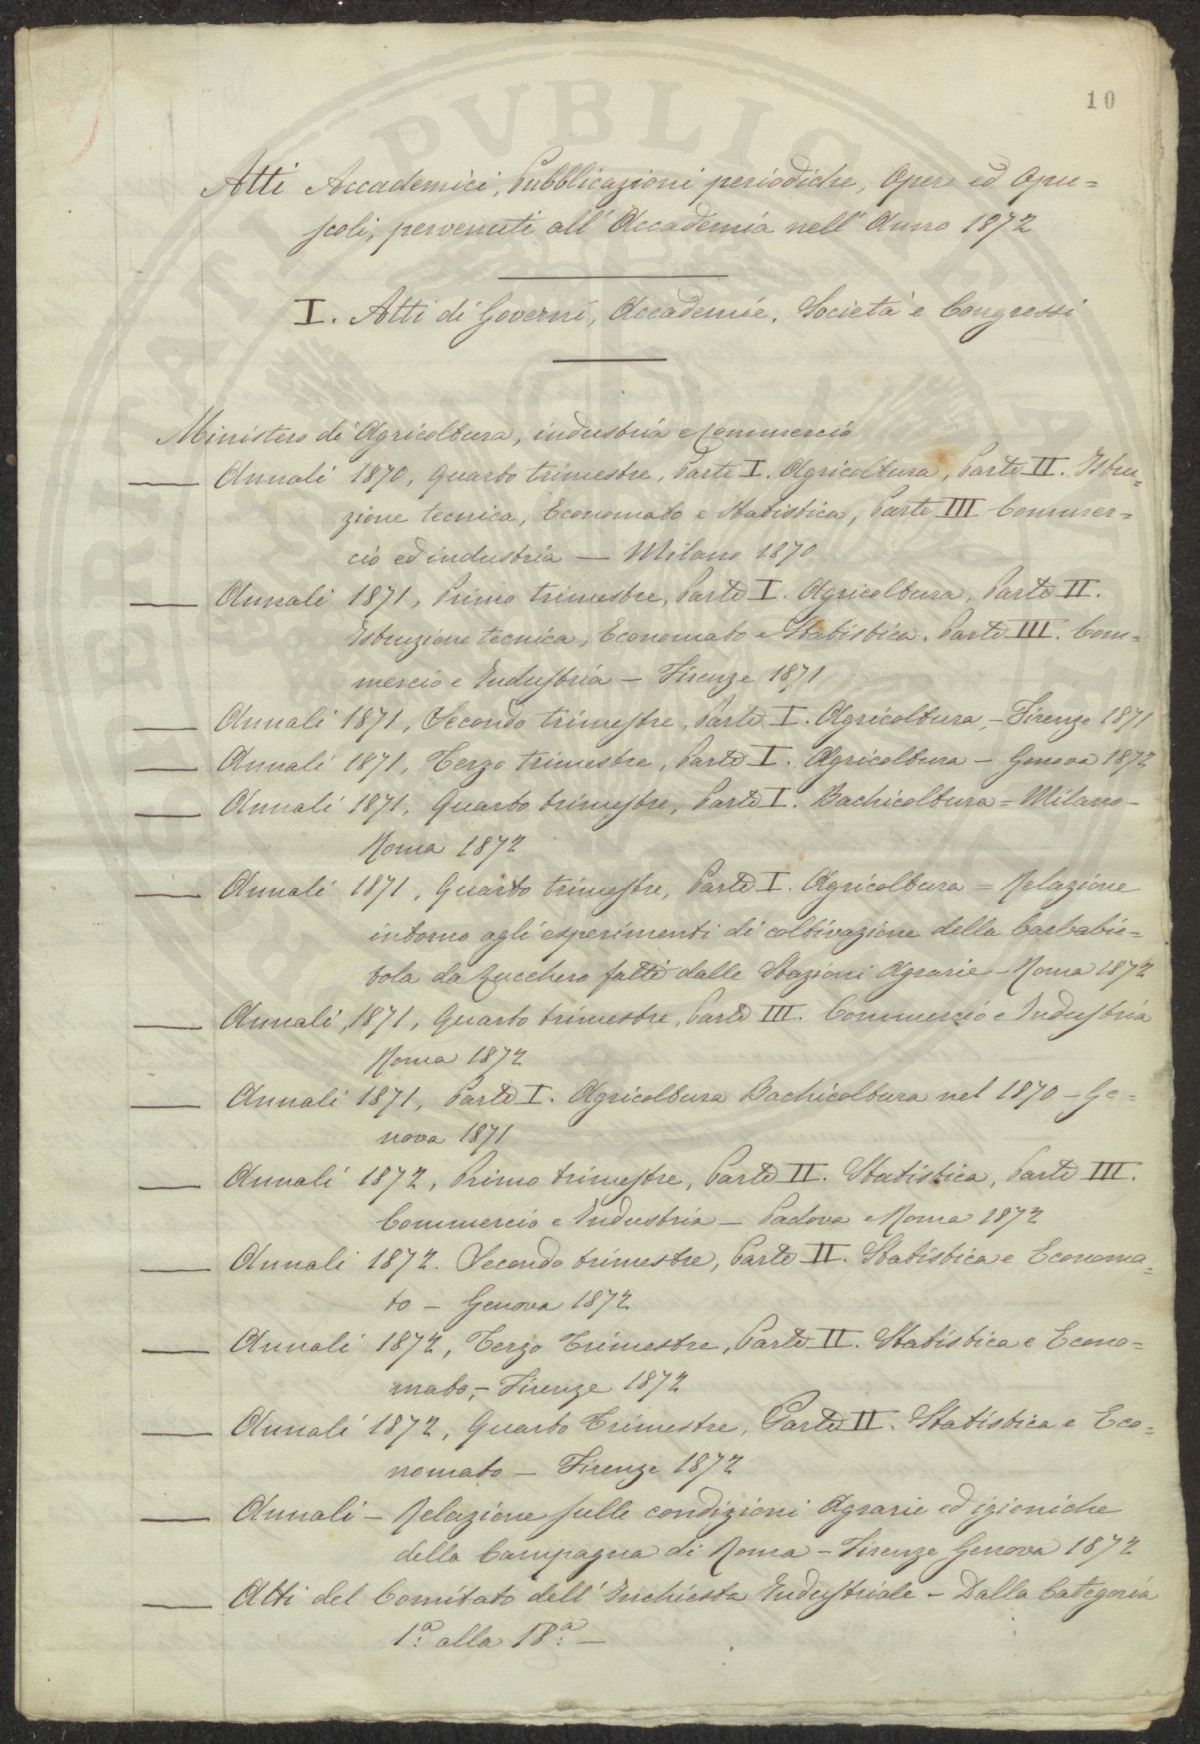 10
Atti Accademici, Pubblicazioni periodiche, Opere ed Opu=
scoli, pervenuti all'Accademia nell'Anno 1872
I. Atti di Governi, Accademie, Società e Congressi
Ministero di Agricoltura, industria e Commercio
Annali 1870, quarto trimestre, Parte I. Agricoltura, Parte II. Istru=
zione tecnica, Economato e Statistica, Parte III Commer=
cio ed industria — Milano 1870
Annali 1871, Primo trimestre, Parte I. Agricoltura, Parte II.
Istruzione tecnica, Economato e Statistica. Parte III. Com=
mercio e Industria — Firenze 1871
Annali 1871, Secondo trimestre, Parte I. Agricoltura — Firenze 1871
Annali 1871, Terzo trimestre, Parte I. Agricoltura — Genova 1872
Annali 1871, Quarto trimestre, Parte I. Bachicoltura = Milano —
Roma 1872
Annali 1871, Quarto trimestre, Parte I. Agricoltura = Relazione
intorno agli esperimenti di coltivazione della barbabie=
tola da Zucchero fatti dalle Stazioni Agrarie — Roma 1872
Annali, 1871, Quarto trimestre, Parte III. Commercio e Industria
Roma 1872
Annali 1871, Parte I. Agricoltura Bachicoltura nel 1870 — Ge=
nova 1871
Annali 1872, Primo trimestre, Parte II. Statistica, Parte III.
Commercio e Industria — Padova e Roma 1872
Annali 1872. Secondo trimestre, Parte II. Statistica e Economa=
to — Genova 1872
Annali 1872, Terzo Trimestre, Parte II. Statistica e Econo=
mato, — Firenze 1872
Annali 1872, Quarto Trimestre, Parte II. Statistica e Eco=
nomato — Firenze 1872
Annali — Relazione sulle condizioni Agrarie ed igieniche
della Campagna di Roma — Firenze Genova 1872
Atti del Comitato dell'Inchiesta Industriale — Dalla Categoria
1ª alla 18ª —